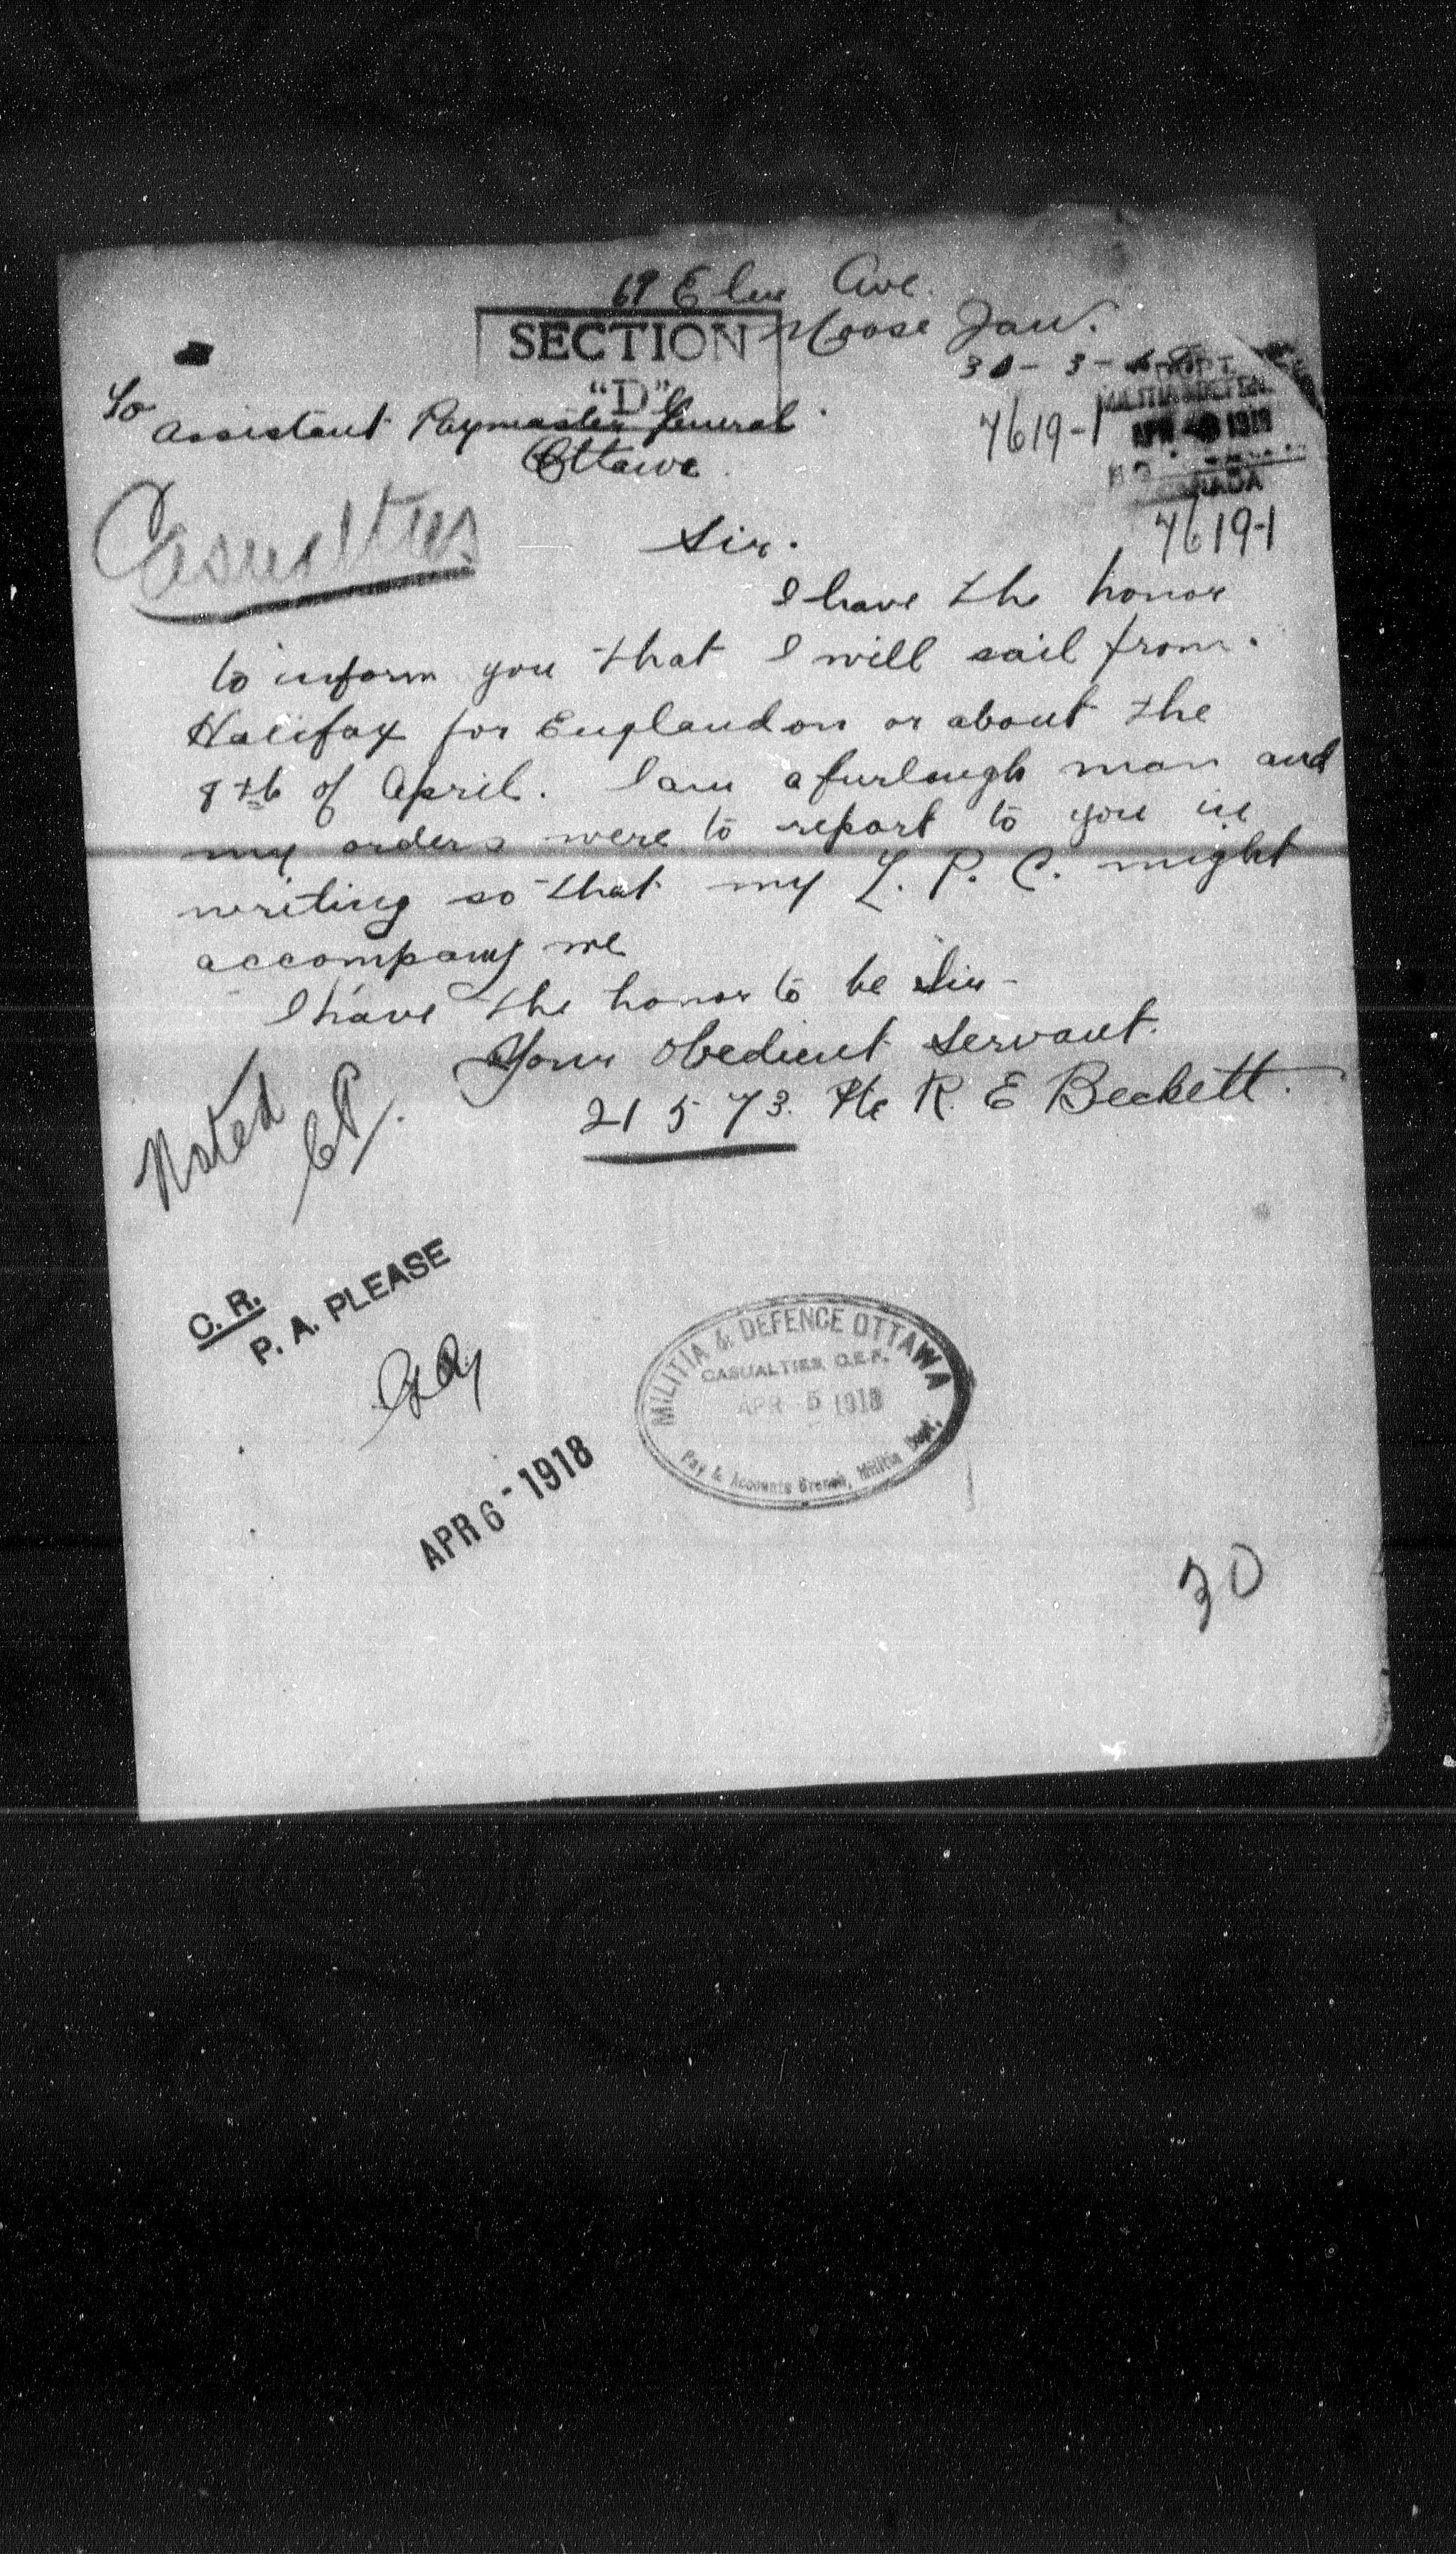 69 Elm Ave.
Moose Jaw.
SECTION
"D"
30 - 3 -
To
Assistant Paymaster General
Ottawa
7619-1
DEPT.
MILITIA & DEFENCE
APR 1918
CANADA
7619-1
Casualties
Sir.
I have the honor
to inform you that I will sail from
Halifax for England on or about the
8th of April. I am a furlough man and
my orders were to report to you in
writing so that my L. P. C. might
accompany me
I have the honor to be Sir -
Your Obedient Servant.
21573. Pte R. E Beckett.
Noted
C. R.
P. A. PLEASE
APR 6 - 1918
MILITIA & DEFENCE OTTAWA
CASUALTIES, C.E.F.
APR 5 1918
Pay & Accounts Branch, Militia Dept.
30